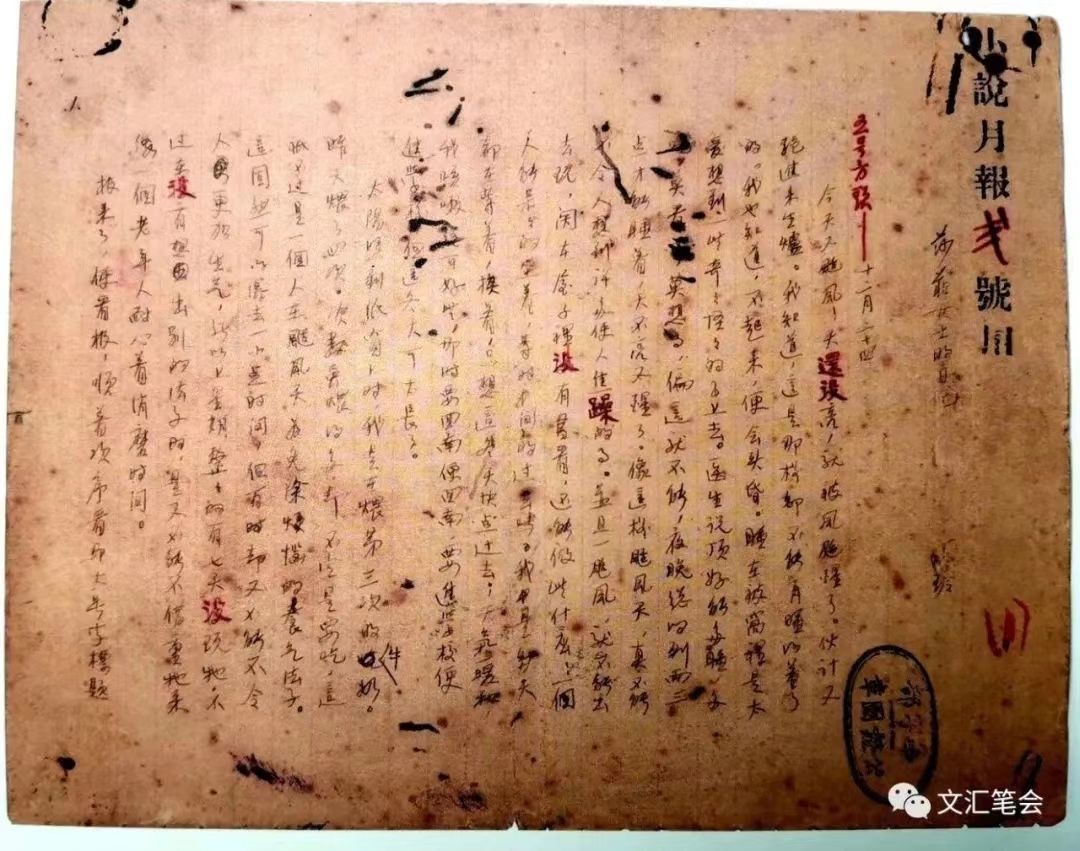 小說月報弍號用
莎菲女士的日記
丁玲
五号方頭 十二月二十四
今天又颳風！天還沒亮，就被風颳醒了。伙計又
跑進來生爐。我知道，這是那样都不能再睡得着了
的。我也知道，不起來，便會头昏。睡在被窩裡是太
爱想到一些奇奇怪怪的事上去。医生说頂好能多睡，多
莫看書，莫想事，偏這就不能，夜晚總得到兩三
点才能睡着，天不亮又醒了。像這样颳風天，真不能
不令人想到許多使人焦躁的事。並且一颳風，就不能出
去玩，関在屋子裡沒有書看，还能做些什麽？一個
人能呆呆的坐着，等时间的过去嗎？我是每天
都在等着，挨着，只想這冬天快点过去；天氣暖和，
我咳嗽總可好些，那時要回南便回南，要進學校便
進學校，但這冬天可太長了。
太陽照到紙窗上时，我在煨第三次的牛奶。
昨天煨了四次。次數雖煨得多，却不定是要吃，這
只不过是一個人在颳風天為免除煩惱的養氣法子。
這固然可以混去一小点时间，但有时却又不能不令
人更加生氣，所以上星期整整的有七天沒玩牠，不
过在沒有想出别的法子时，是又不能不借重牠来
像一個老年人耐心着消磨时间。
報来了，便看報，順着次序看那大号字標題
(1)
文汇笔会